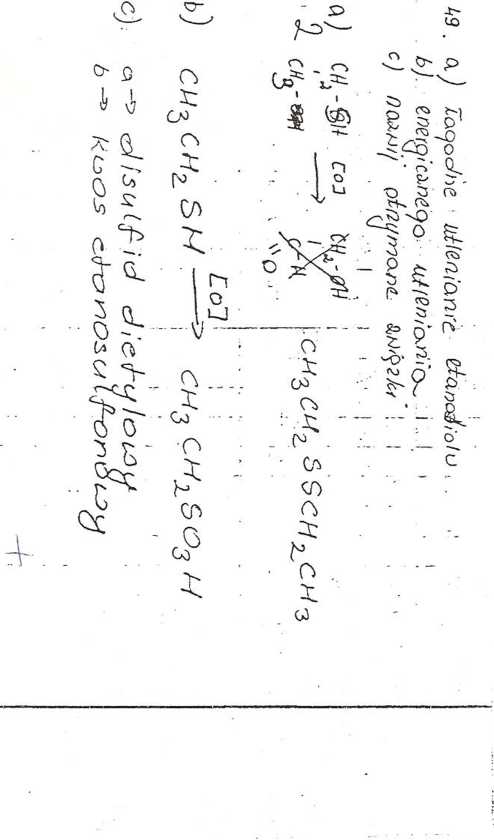 49. a) łagodne utlenianie etanodiolu
b) energicznego utleniania
c) nazwij otrzymane związki
a)
2 CH2-SH [O] → CH2-OH CH3CH2SSCH2CH3
CH3- C-H
=O
b) CH3CH2SH [O] → CH3CH2SO3H
c) a → disulfid dietylowy
b → kwas etanosulfonowy
+